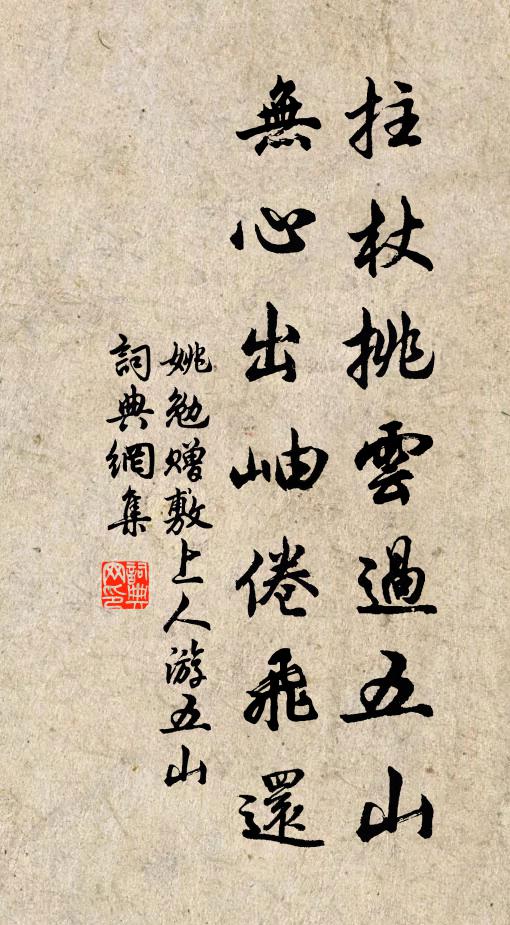 拄杖挑雲過五山
無心出岫倦飛還
姚勉赠敷上人游五山
詞典網集
詞典网印